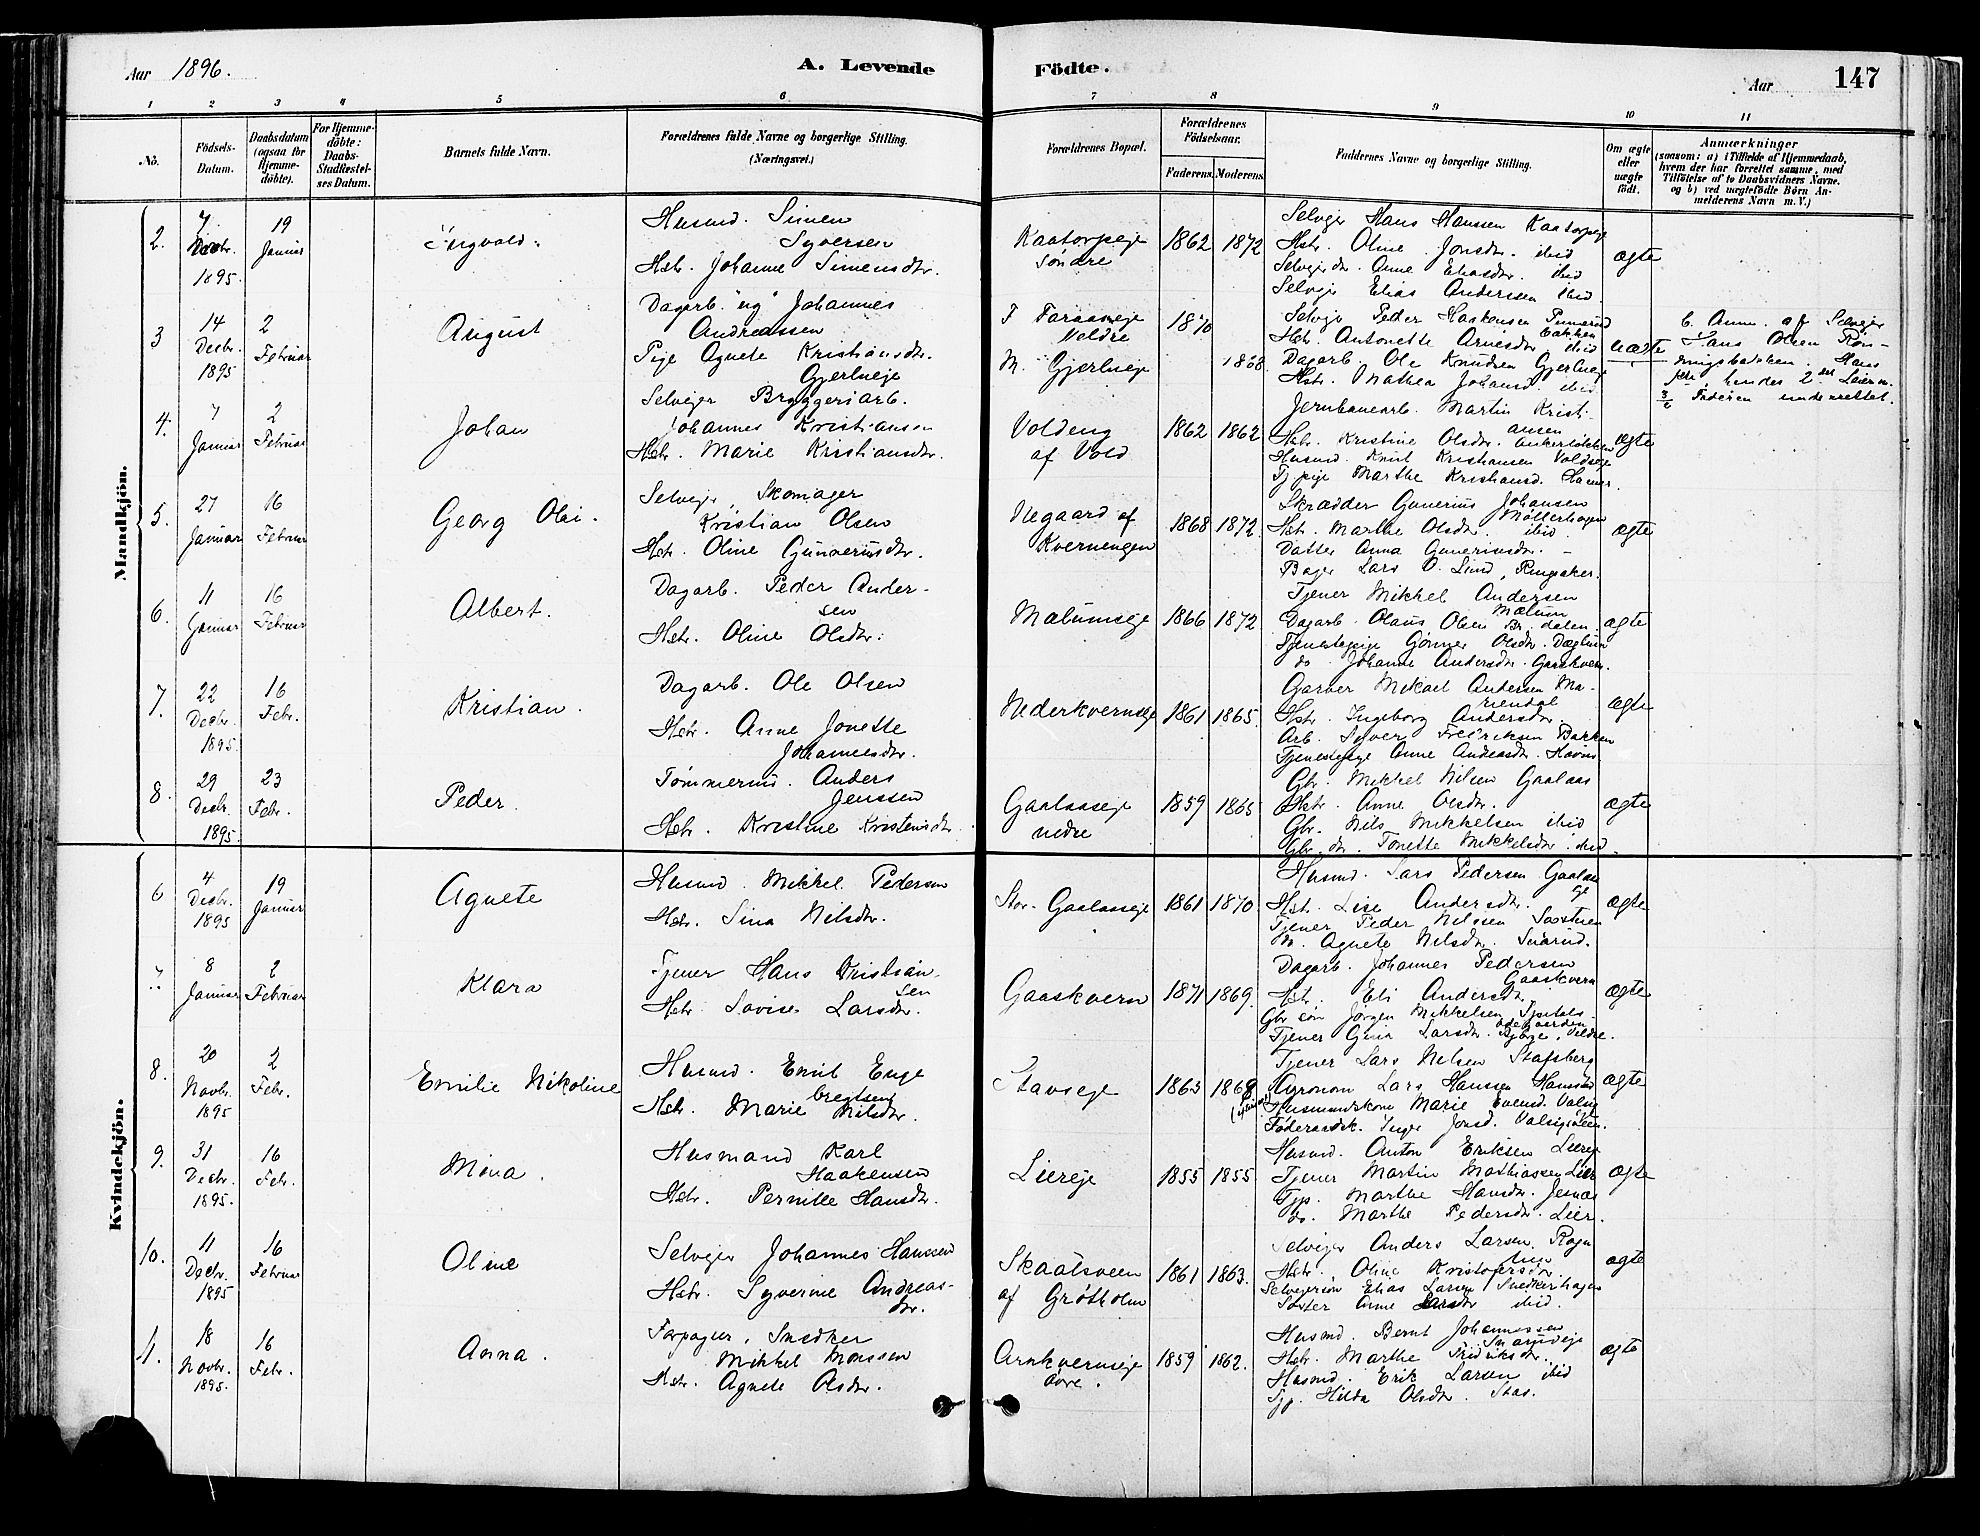 Aar 1896.
A. Levende
Födte.
Aar
147
1 2 3 4 5 6 7 8 9 10 11
No.
Födsels-
Datum.
Daabsdatum
(ogsaa for
Hjemme-
döbte).
For Hjemme-
döbte:
Daabs-
Stadfæstel-
ses Datum.
Barnets fulde Navn.
Forældrenes fulde Navne og borgerlige Stilling.
(Næringsvei.)
Forældrenes Bopæl.
Forældrenes
Födselsaar.
Faderens.
Moderens.
Faddernes Navne og borgerlige Stilling.
Om ægte
eller
uægte
födt.
Anmærkninger
(saasom: a) i Tilfælde af Hjemmedaab,
hvem der har forrettet samme, med
Tilföielse af to Daabsvidners Navne,
og b) ved uægtefödte Börn An-
melderens Navn m. V.)
Mandkjön.
2.
7
Novbr.
1895.
19
Januar
Ingvald.
Husmd. Simen
Syversen
Hstr. Johanne Simensdtr.
Kaatorpeje
söndre
1862
1872
Selvejer Hans Hansen Kaatorpeje
Hstr. Oline Jonsdr. ibid
Selvejerdr. Anne Eliasdr. ibid
Selvejr Elias Andersen ibid.
ægte
3
14
Decbr.
1895
2
Februar
August
Dagarb. "ug" Johannes
Andreassen
Pige Agnete Kristiansdr.
Gjerlueje
F Faraaseje
Veldre
M. Gjerlueje
1870
1868.
Selvejr Peder Haakensen
bakken
Hstr. Antonette Arnesdr ibid
Dagarb. Ole Knudsen Gjerlueje
Hstr. Mathea Johansd. ibid.
uægte
Anm. af Selvejer
Hans Olsen Røn-
ningsbakken. Hans
hendes 2den Leierm.
Faderen underrettet.
4.
7
Januar
2
Februar
Johan
Selvejer Bryggeriarb.
Johannes Kristiansen
Hstr. Marie Kristiansdr.
Voldeng
af Vold
1862
1862
Jernbanearb. Martin Kristi-
ansen
Hstr. Kristine Olsdr. Ankerløkken
Husmd. Knut Kristiansen Voldseje
Tj.pige Marthe Kristiansd. Hamar.
ægte
5.
27
Januar
16
Februar
Georg Olai.
Selvejer, Skomager
Kristian Olsen
Hstr. Oline Gunneriusdr.
Negaard af
Kvernengen
1868
1872.
Skrædder Gunerius Johansen
Møllerhagen
Hstr. Marthe Olsdr. ibid.
Datter Anna Guneriusdr. –
Bager Lars O. Lund, Ringsaker.
ægte
6.
11
Januar
16
Februar
Albert.
Dagarb. Peder Ander-
sen
Hstr. Oline Olsdr.
Mælumseje
1866
1872
Tjener Mikkel Andersen
Mælum
Dagarb. Olaus Olsen Br.dalen
Tjenestepige Gønner Olsdr. Dæglum
do. Johanne Andersdr. Gaaskvern.
ægte
7.
22
Decbr.
1895.
16
Febr.
Kristian.
Dagarb. Ole Olsen
Hstr. Anne Jonette
Johannesdr.
Nederkvernseje
1861
1865.
Garver Mikael Andersen Ma-
riendal
Hstr. Ingeborg Andersdr.
Arb. Syver Fredriksen Bakken
Tjenestepige Anne Andreasdr.
ægte
8.
29
Decbr.
1895
23
Febr.
Peder.
Tømmermd. Anders
Jenssen
Hstr. Kristine Kristensdtr.
Gaalaaseje
nedre
1859
1865
Gbr. Mikkel Nilsen Gaalaas
Hstr. Anne Olsdr.
Gbr. Nils Mikkelsen ibid
Gbr.dr. Tonette Mikkelsdr. ibid.
ægte
Kvindekjön.
6
4
Decbr.
1895
19
Januar
Agnete
Husmd. Mikkel Pedersen
Hstr. Sina Nilsdr.
Stor-Gaalaaseje
1861
1870.
Husmd. Lars Pedersen Gaalaas
eje
Hst. Lise Andersdr.
Tjener Peder Nilssen Saxstuen
do. Agnete Nilsdr. Snarud.
ægte
7.
8
Januar
2
Februar
Klara
Tjener Hans Kristian-
sen
Hstr. Lovise Larsdr.
Gaaskvern
1871
1869.
Dagarb. Johannes Pedersen
Gaaskvern
Hstr. Eli Andersdr.
Gbr.søn Jørgen Mikkelsen
Tjener Gina Larsdr. Veldre.
ægte
8.
20
Novbr.
1895
2
Febr.
Emilie Nikoline
Husmd. Emil Enge-
bregtsen
Hstr. Marie Nilsdr.
Stavseje
1863
1868
Tjener Lars Nilsen Stafsberg
Agronom Lars Hanssen Hamstad
Husmandskone Marie Evensd.
Føderaadsk. Inger Jonsd.
ægte
9.
31
Decbr.
1895.
16
Febr.
Mina.
Husmand Karl
Haakensen
Hstr. Pernille Hansdr.
Liereje
1855
1855
Husmd. Anton Eriksen Liereje
Tjener Martin Mathiassen Lier
Tjp. Marthe Hansdr. Jesnæs
do. Marthe Pedersdr. Lier.
ægte
10.
11
Decbr.
1895
16
Februar
Oline
Selvejer Johannes Hanssen
Hstr. Syverine Andreas-
dr.
Skaalsveen
af Grøtholm
1861
1863.
Selvejer Anders Larsen Rogn
lien
Hstr. Oline Kristofersdr.
Selvejersøn Elias Larsen Snedkerhagen
Søster Anne Larsdr ibid.
ægte
11.
18
Novbr.
1895.
16
Febr.
Anna.
Forpagter, Snedker
Mikkel Monssen
Hstr. Agnete Olsdr.
Arnkvernseje
øvre.
1859
1862.
Husmd. Bernt Johannessen
Snarudeje
Hstr. Marthe Fredriksdr.
Husmd. Erik Larsen ibid
Tjp. Hilda Olsdr. Stas.
ægte